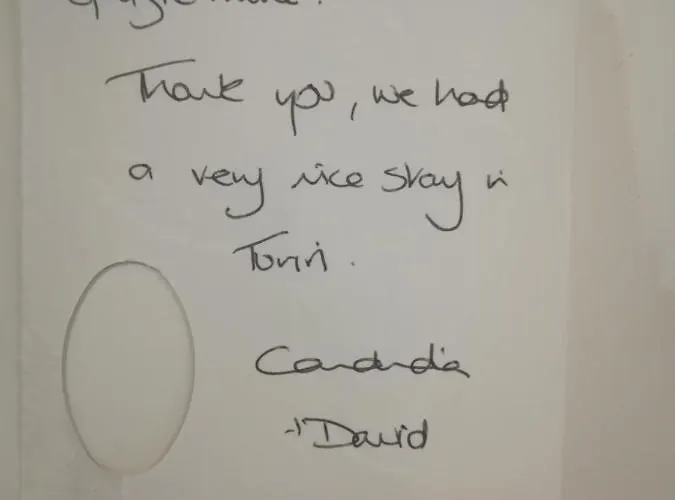 Thank you, we had
a very nice stay in
Turin.
+ David